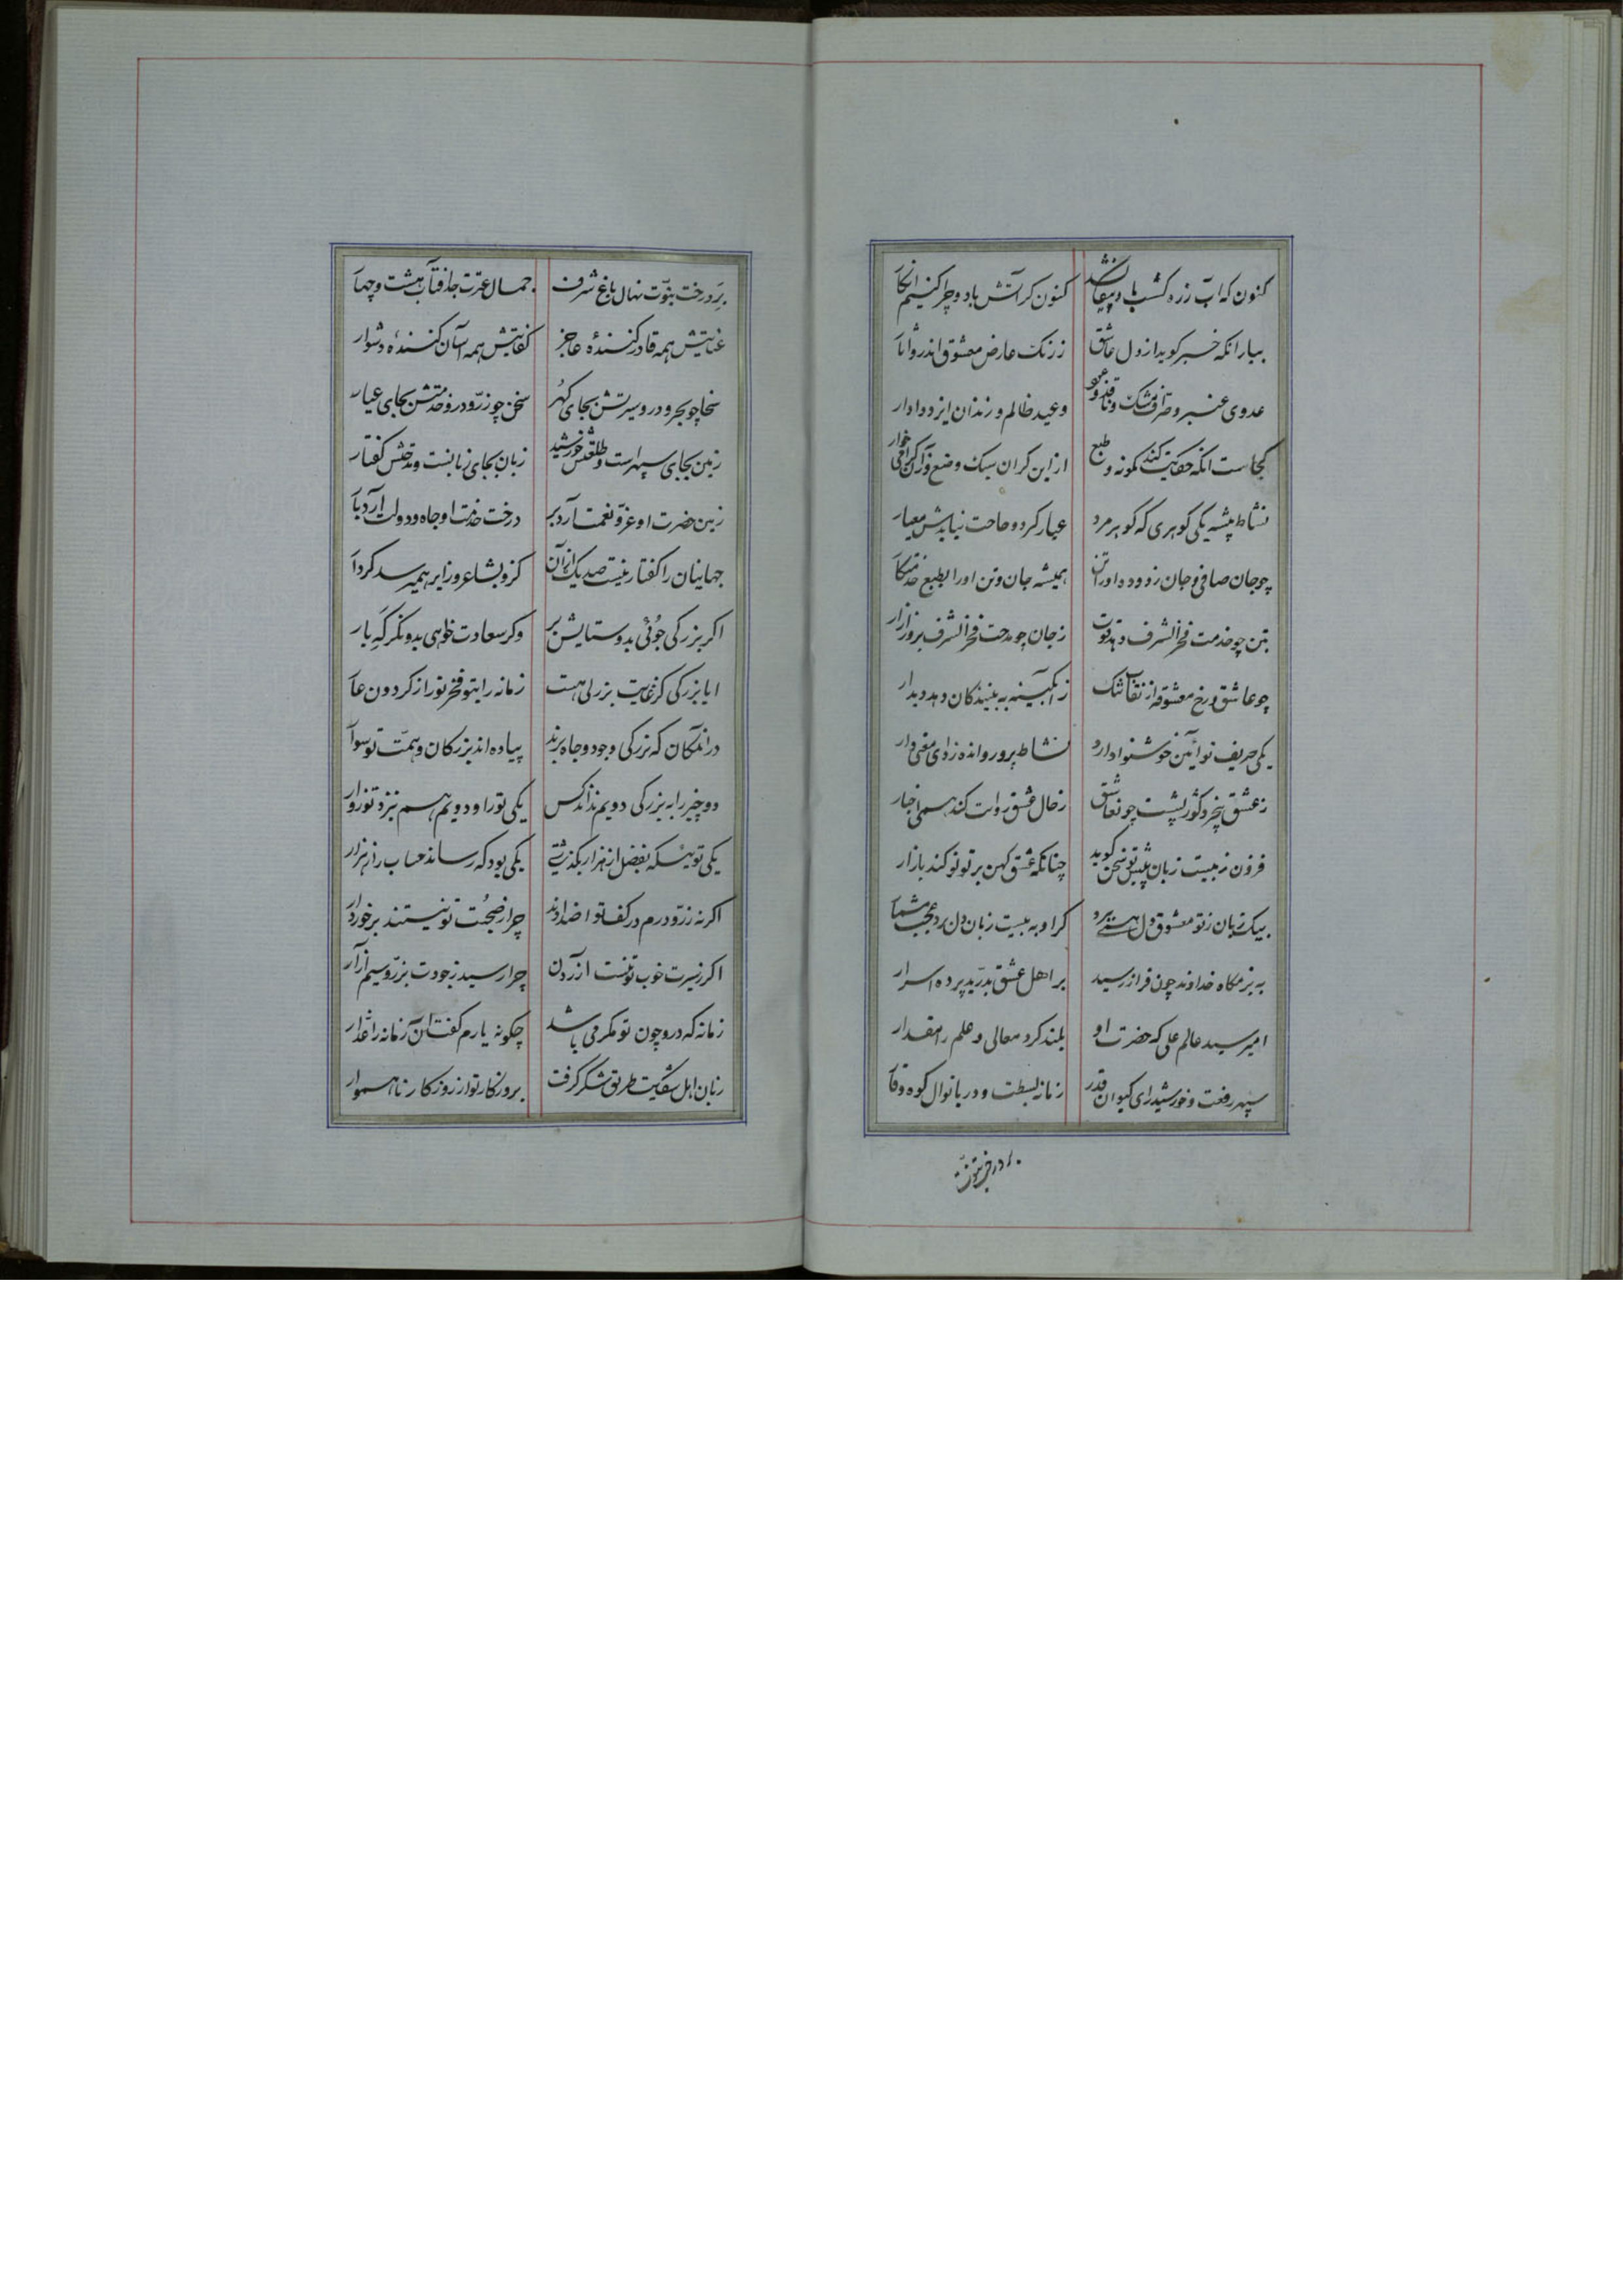 کنون که آب زره کشب باد پیقا نشد کنون کر آتش باد و چرا کنیم انکار
بیار انکه خبر کوید از دل عاشق ز رنک عارض معشوق اندر و اثار
عدوی عنبر و صراف مشک و ناقد عود وعید ظالم و زندان ایزد دادار
کجاست انکه حکایت کند کونه و طبع از این کران سبک وضع وزان
نشاط پیشه یکی کوهری که کوهر مرد عیار کرد و حاجت نیایدش معیار
چو جان صافی و جان زدوده او را تن همیشه جان و تن او را بطبع خدمتکار
بتن چو خدمت فخر الشرف دهد قوت ز جان چو مدحت فخر الشرف بروز ازار
چو عاشق و رخ معشوقه از نقاب تنک ز آبکینه به بینندکان دهد دیدار
یکی حریف نوآئین خوشنوا دارد نشاط پرور و انده زدای مغنی وار
ز عشق پنجر و کوژ پشت چون عاشق ز حال عشق روایت کند همی اخبار
فزون ز بیست زبان پیش تو سخن کوید چنانکه عشق کهن بر تو نو کند بازار
بیک زبان ز تو معشوق دل همی ببرد کر او به بیست زبان دل برد عجب مشمار
به بزمکاه خداوند چون فراز رسید بر اهل عشق بدرید پرده اسرار
امیر سید عالم علی که حضرت او بلند کرد معالی و علم را مقدار
سپهر رفعت و خورشید رای کیوان قدر زمانه بسطت و دریا نوال کوه وقار
بر درخت نبوت
بر درخت نبوت نهال باغ شرف جمال عترت جد آفتاب هشت و چهار
عنایتش همه قادر کنندهٔ عاجز کفایتش همه آسان کنندهٔ دشوار
سخا چو بحر و درو سیرتش بجای کهر سخن چو زر و درو خدمتش بجای عیار
زمین بجای سپهر است و طلعتش خورشید زبان بجای زبانست و مدحتش کفتار
زمین حضرت او عز و نعمت آرد بر درخت خدمت او جاه و دولت آرد بار
جهانیان را کفتار نیست صد یک از آن کزو بشاعر و زایر همیرسد کردار
اکر بزرکی جوئی بدو ستایش بر وکر سعادت خواهی بدو نکر که بار
ایا بزرکی کز غایت بزرکی هست زمانه را بتو فخر و تو را ز کردون عار
در آنمکان که بزرکی و جود و جاه برند پیاده اند بزرکان و همت تو سوار
دو چیز را به بزرکی دویم نداند کس یکی تو را و دویم هم بنزد تو زوار
یکی تو ئیکه بفضل از هزار بکذشتی یکی بود که رساند حساب را ز هزار
اکر نه زر و درم در کف تو اضدادند چرا ز صحبت تو نیستند برخوردار
اکر ز سیرت خوب تو نیست ازردن چرا رسید ز جودت بزر و سیم آزار
زمانه که درو چون تو مکرمی باشد چکونه یارم کفتن آن زمانه را غدار
زبان اهل شکایت طریق شکر کرفت بروزکار تو از روزکار ناهموار